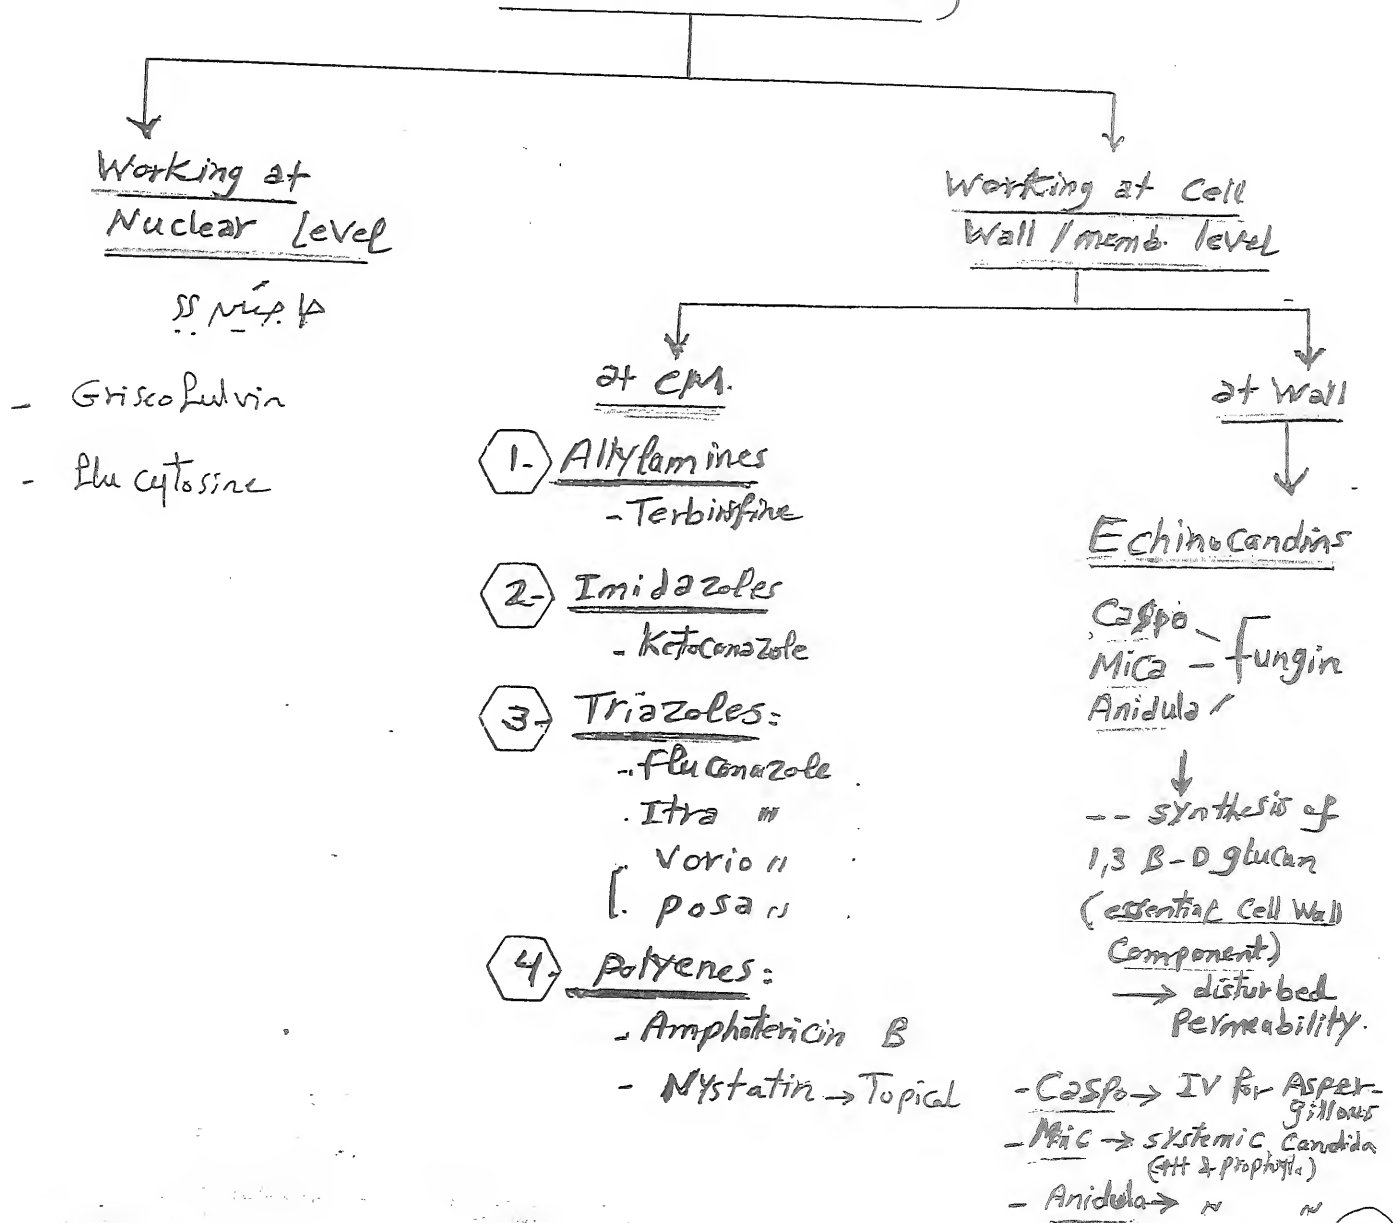 Working at
Nuclear level
- Griseofulvin
- Flu cytosine
Working at Cell
Wall / memb. level
at CM.
1- Allylamines
- Terbinafine
2- Imidazoles
- Ketoconazole
3- Triazoles:
- Fluconazole
. Itra "
. Vorio "
[. posa "
4- Polyenes:
- Amphotericin B
- Nystatin → Topical
at Wall
Echinocandins
Caspo
Mica - fungin
Anidula
-- synthesis of
1,3 B-D glucan
(essential Cell Wall
Component)
→ disturbed
Permeability.
- Caspo → IV for Asper-
gillous
- Mic → systemic Candida
(ttt & prophyl.)
- Anidula → ~ ~